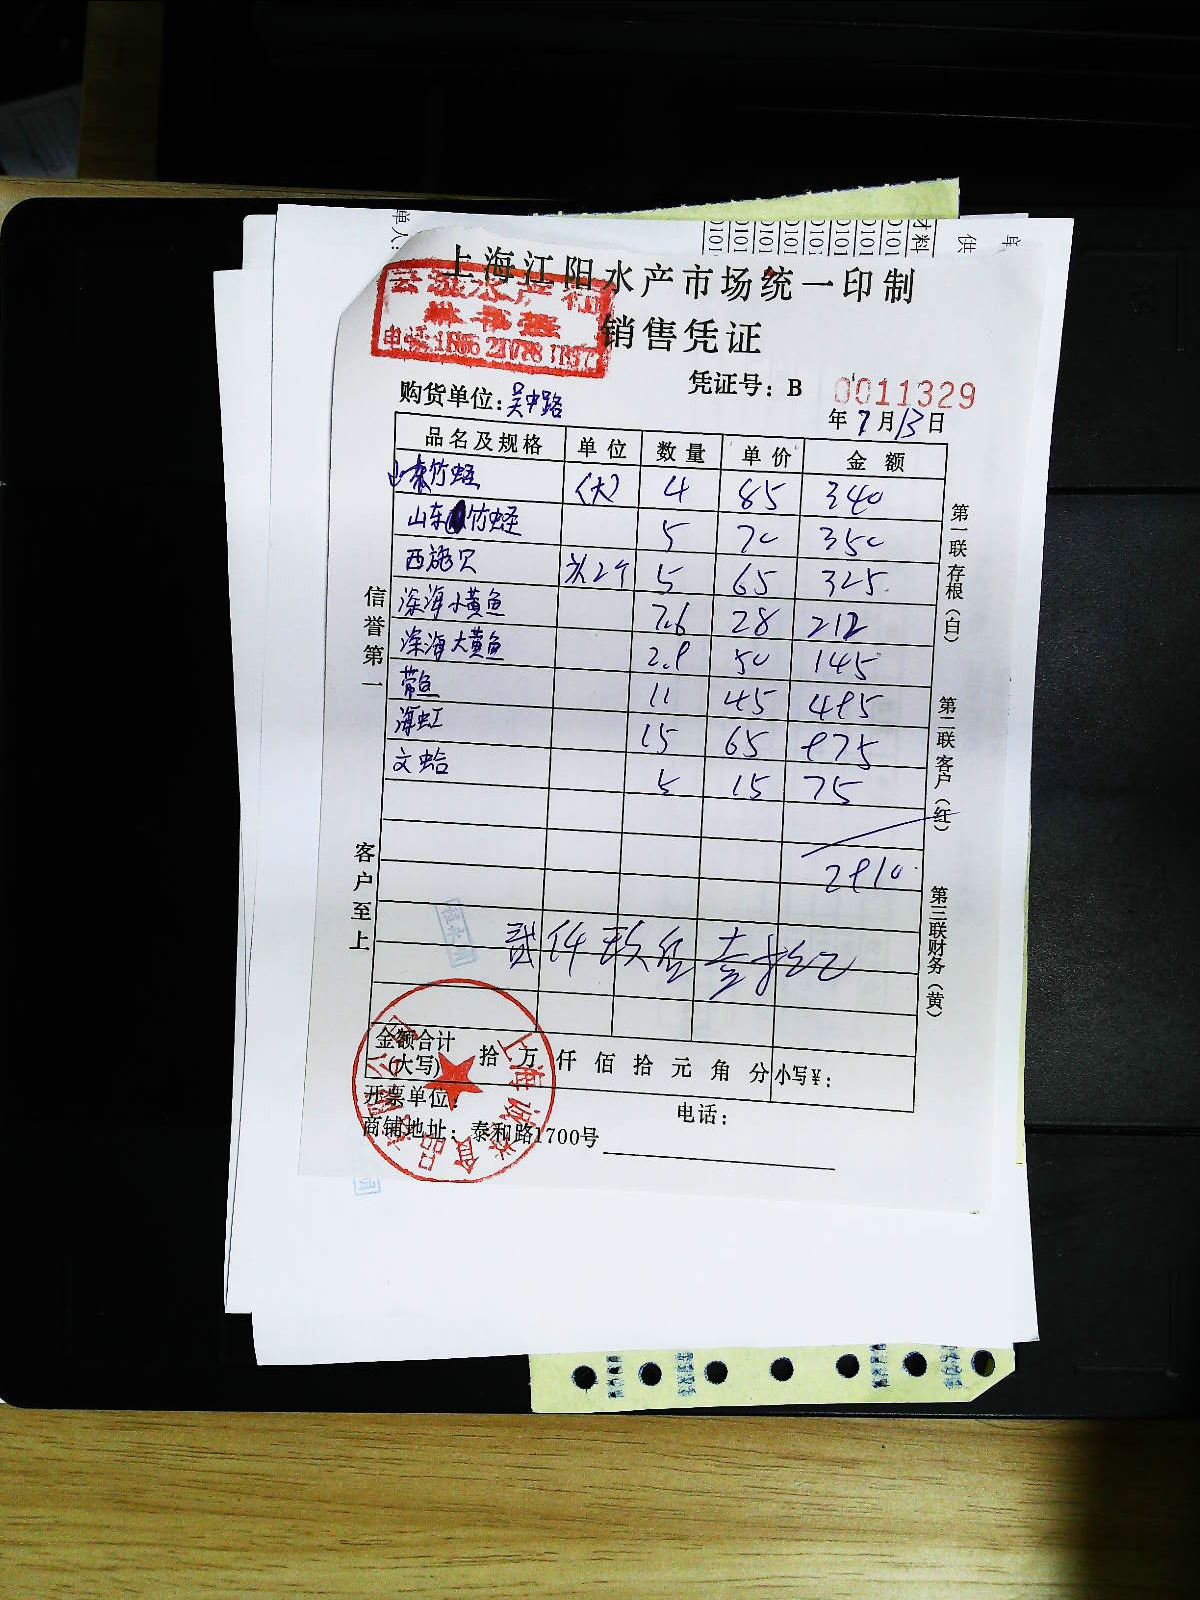 单人：
材料
供
单
上海江阳水产市场统一印制
销售凭证
凭证号：B 0011329
购货单位：吴中路
年 7 月 13 日
品名及规格 单位 数量 单价 金额
山东竹蛏 （大） 4 85 340
山东竹蛏 5 70 350
西施贝 5 65 325
深海小黄鱼 7.6 28 212
深海大黄鱼 2.9 50 145
带鱼 11 45 495
海虹 15 65 975
文蛤 5 15 75
2910
贰仟玖佰壹拾元
金额合计（大写） 拾 万 仟 佰 拾 元 角 分 小写￥：
开票单位： 电话：
商铺地址：泰和路1700号
信誉第一
客户至上
第一联存根（白）
第二联客户（红）
第三联财务（黄）